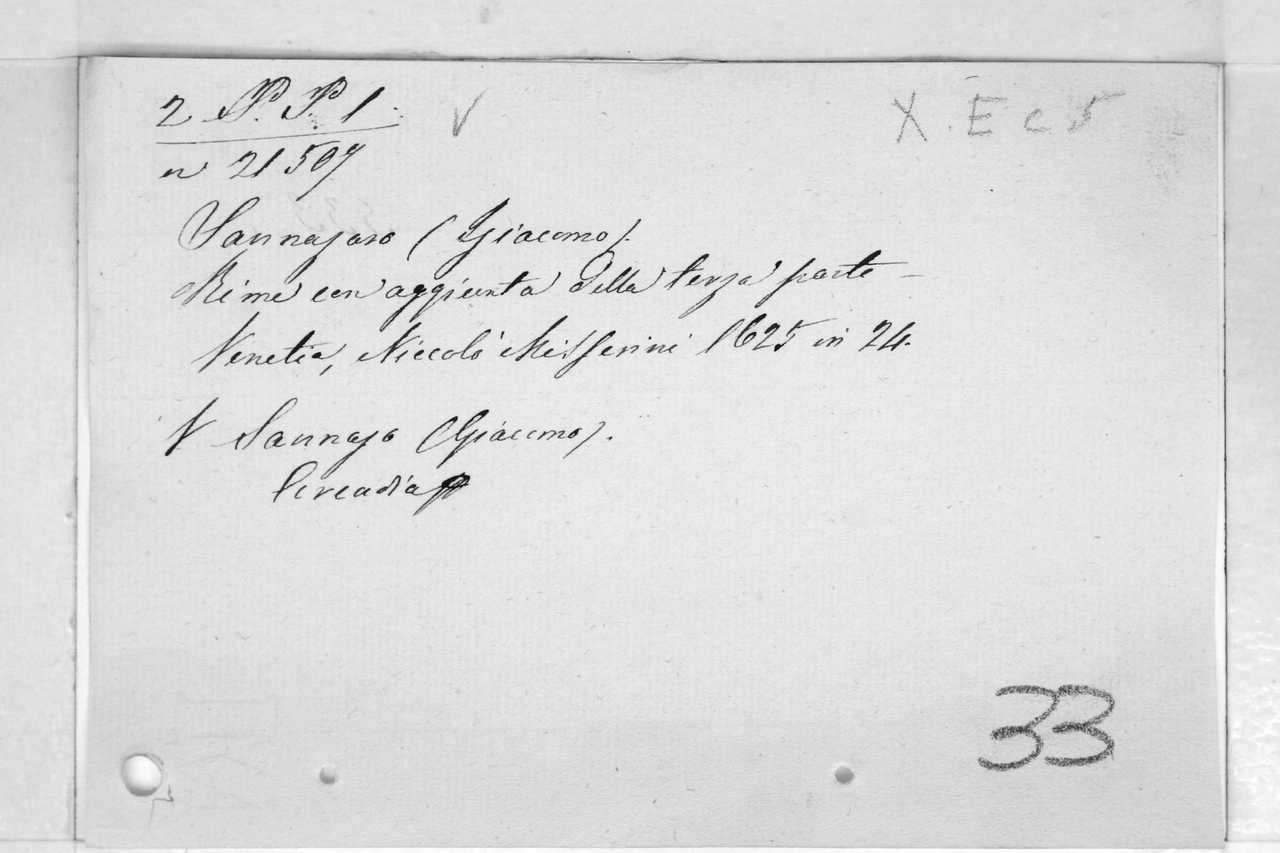 2 P. P. 1.
V
X. E c 5
n 21507
Sannazaro (Giacomo).
Rime con aggiunta della terza parte –
Venetia, Niccolò Misserini 1625 in 24.
V Sannaza (Giacomo).
Arcadia
33